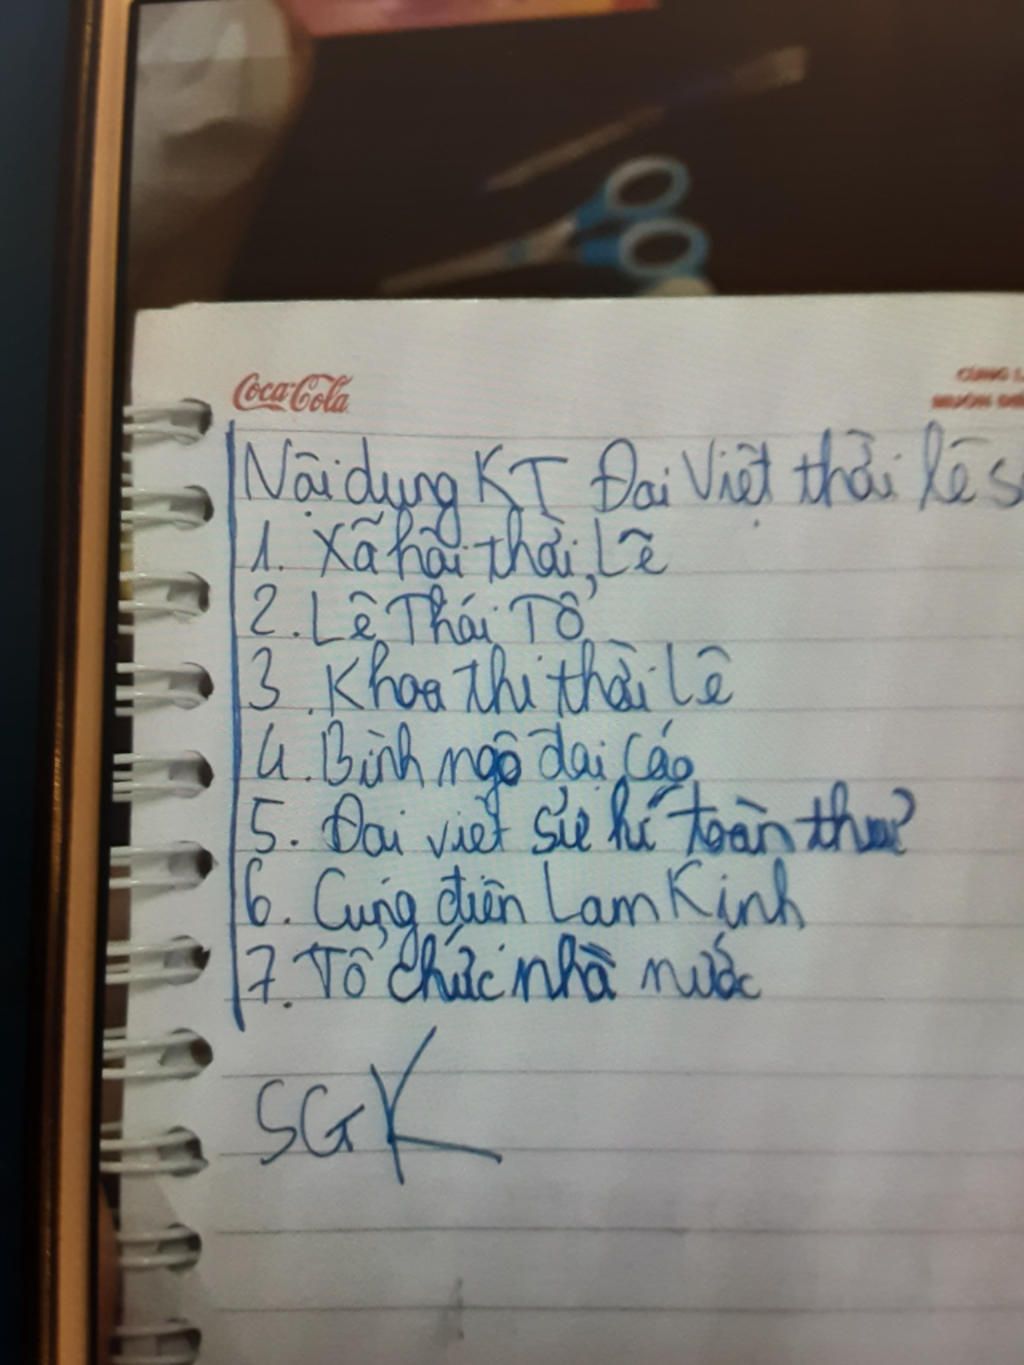 Coca-Cola
Nội dung KT Đại Việt thời Lê S
1. Xã hội thời Lê
2. Lê Thái Tổ
3. Khoa thi thời Lê
4. Bình ngô đại cáo
5. Đại việt sử kí toàn thư
6. Cung điện Lam Kinh
7. Tổ chức nhà nước
SGK